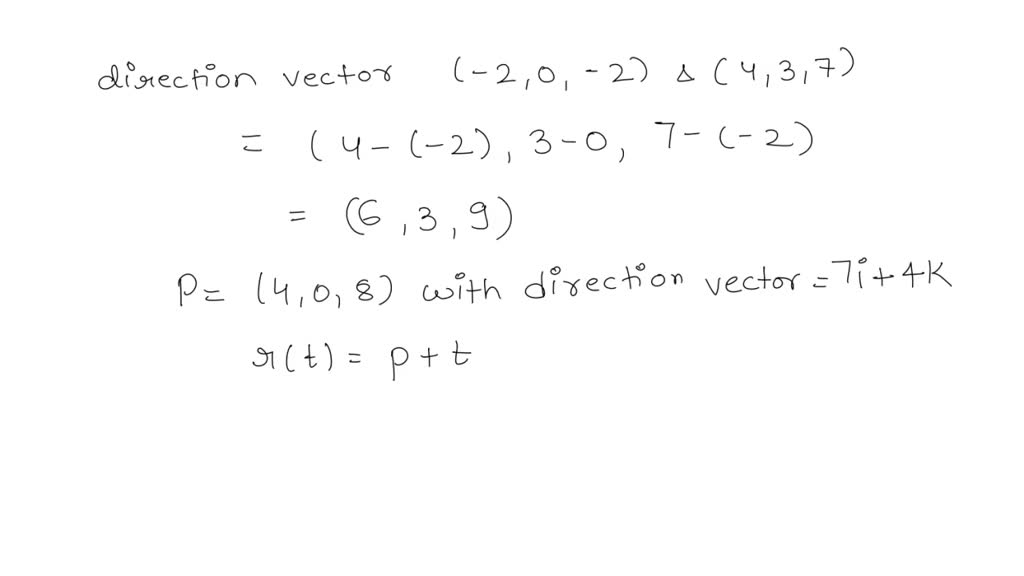 direction vector (-2,0,-2) & (4,3,7)
= (4-(-2), 3-0, 7-(-2)
= (6,3,9)
P= (4,0,8) with direction vector = 7i+4K
r(t) = p+t